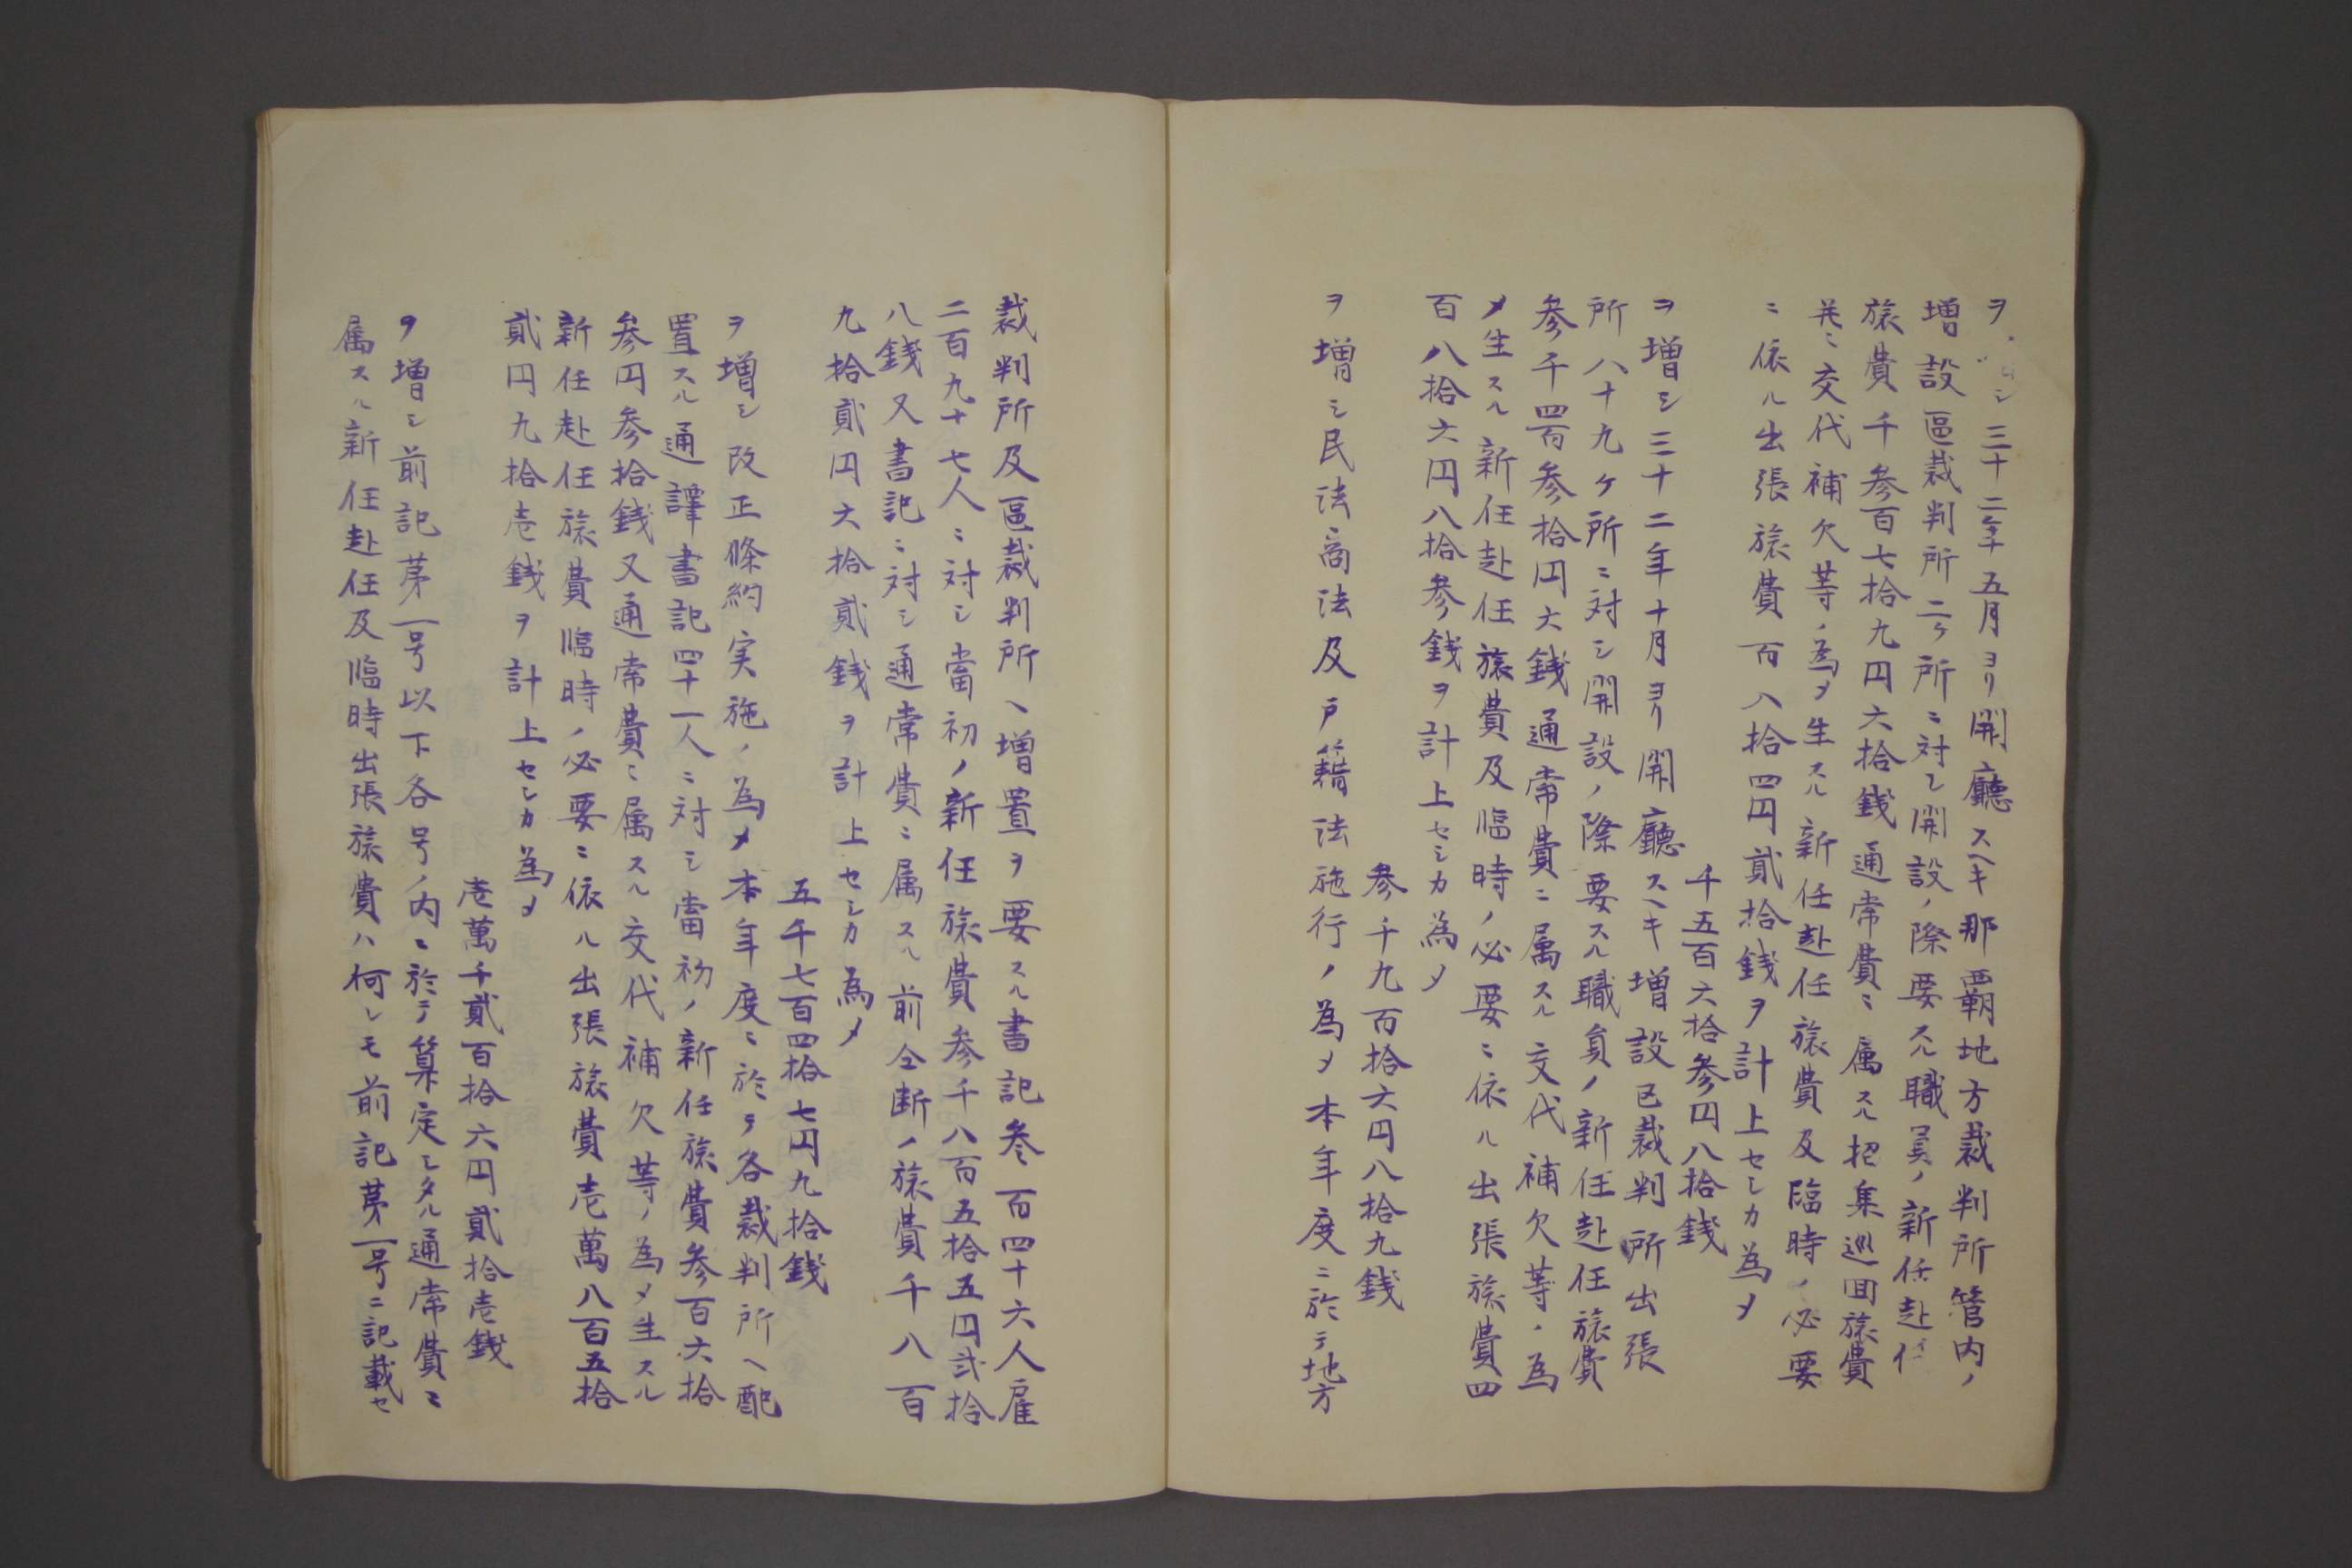 ヲ シ三十二年五月ヨリ開廳スヘキ那覇地方裁判所管内ノ
増設區裁判所二ケ所ニ対シ開設ノ際要スル職員ノ新任赴任
旅費千参百七拾九円六拾銭通常費ニ属スル招集巡回旅費
並ニ交代補欠等ノ為メ生スル新任赴任旅費及臨時ノ必要
ニ依ル出張旅費百八拾四円貳拾銭ヲ計上セシカ為メ
千五百六拾参円八拾銭
ヲ増シ三十二年十月ヨリ開廳スヘキ増設区裁判所出張
所八十九ケ所ニ対シ開設ノ際要スル職員ノ新任赴任旅費
参千四百参拾円六銭通常費ニ属スル交代補欠等ノ為
メ生スル新任赴任旅費及臨時ノ必要ニ依ル出張旅費四
百八拾六円八拾参銭ヲ計上セシカ為メ
参千九百拾六円八拾九銭
ヲ増シ民法商法及戸籍法施行ノ為メ本年度ニ於テ地方
裁判所及區裁判所ヘ増置ヲ要スル書記参百四十六人雇
二百九十七人ニ対シ當初ノ新任旅費参千八百五拾五円弐拾
八銭又書記ニ対シ通常費ニ属スル前仝断ノ旅費千八百
九拾貳円六拾貳銭ヲ計上セシカ為メ
五千七百四拾七円九拾銭
ヲ増シ改正條約実施ノ為メ本年度ニ於テ各裁判所ヘ配
置スル通譯書記四十一人ニ対シ當初ノ新任旅費参百六拾
参円参拾銭又通常費ニ属スル交代補欠等ノ為メ生スル
新任赴任旅費臨時ノ必要ニ依ル出張旅費壱萬八百五拾
貳円九拾壱銭ヲ計上セシカ為メ
壱萬千貳百拾六円貳拾壱銭
ヲ増シ前記苐一号以下各号ノ内ニ於テ算定シタル通常費ニ
属スル新任赴任及臨時出張旅費ハ何レモ前記苐一号ニ記載セ